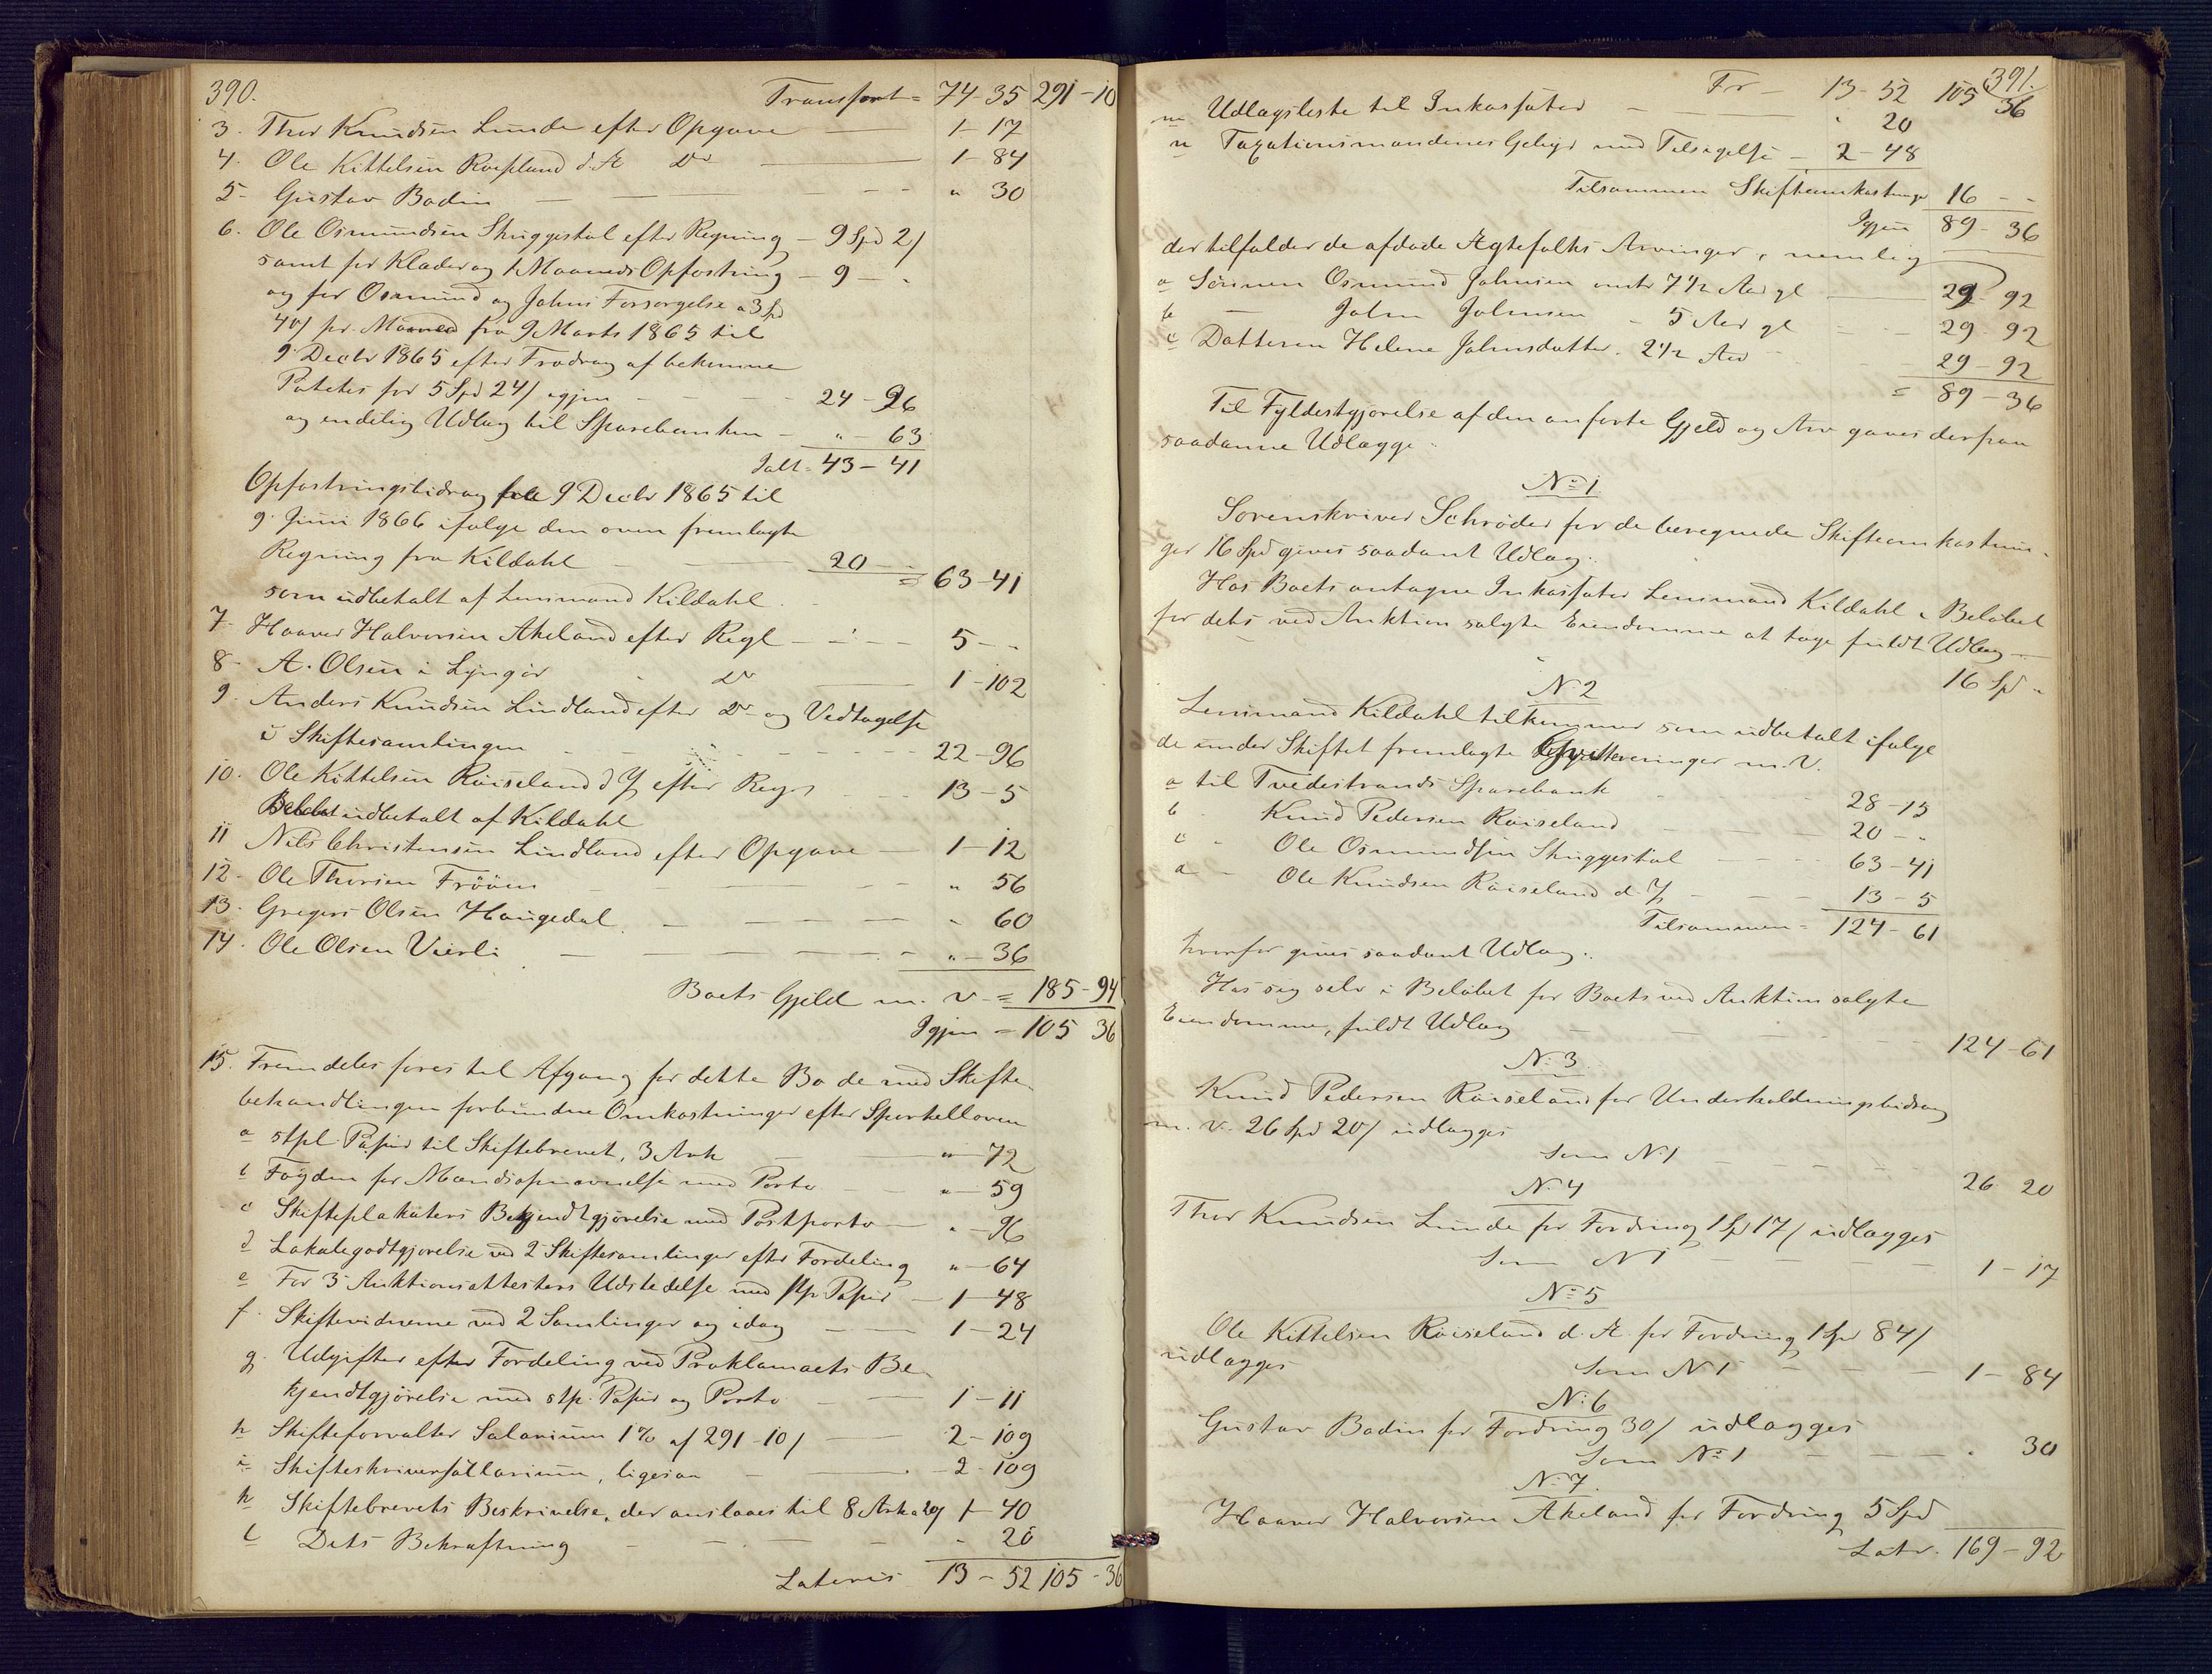 390.
Transport = 74-35 291-10
3. Thor Knudsen Lunde efter Opgave — 1-17
4. Ole Kittelsen Roiseland d. Æ Do — 1-84
5- Gustav Bodin — " 30
6. Ole Osmundsen Skuggestøl efter Regning — 9 Spd 2/
samt for Klæder og 1 Maaneds Opfostring — 9 - "
og for Osmund og Johns Forsørgelse a 3 Spd
40/ pr. Maaned fra 9 Marts 1865 til
9. Decbr 1865 efter Fradrag af bekomne
Poteter for 5 Spd 24/ igjen — 24-96
og endelig Udlæg til Sparebanken — " - 63
Ialt = 43-41
Opfostringsbidrag fra 9 Decbr 1865 til
9. Juni 1866 ifølge den oven fremlagte
Regning fra Kildahl — 20 - -
= 63-41
som udbetalt af Lensmand Kildahl.
7- Haaver Halvorsen Akeland efter Regl — 5 - -
8- A. Olsen i Lyngør Do — 1-102
9. Anders Knudsen Lindland efter Do og Vedtagelse
i Skiftesamlingen — 22-96
10. Ole Kittelsen Röiseland d Y efter Regn — 13-5
Beløbet udbetalt af Kildahl
11 Nils Christensen Lindland efter Opgave — 1-12
12- Ole Thorsen Frööen — " 56
13- Gregers Olsen Haugedal — " 60
14. Ole Olsen Vierli — " - 36
Boets Gjeld m. v. = 185-94
Igjen = 105 36
15. Fremdeles føres til Afgang for dette Bo de med Skifte-
behandlingen forbundne Omkostninger efter Sportelloven
a stpl. Papir til Skiftebrevet, 3 Ark — " 72
b Fogden for Mandsopnævnelse med Porto — " 59
c Skifteplakaters Bekjendtgjørelse med Postporto — " 96
d Lokalegodtgjørelse ved 2 Skiftesamlinger efter Fordeling " 64
e For 3 Auktionsattesters Udstedelse med stp Papir — 1-48
f. Skiftevidnerne ved 2 Samlinger og idag — 1-24
g. Udgifter efter Fordeling ved Proklamaets Be-
kjendtgjørelse med stp. Papir og Porto — 1-11
h Skifteforvalter Salarium 1% af 291-10/ — 2-109
i Skifteskriversallarium, ligesaa — 2-109
k Skiftebrevets Beskrivelse, der anslaaes til 8 Ark a 20/ 1-40
l Dets Bekræftning — " 20
Lateris 13-52 105-36
391.
Fr — 13-52 105 36
m Udlagsliste til Inkassator — " 20
n Taxationsmændenes Gebyr med Tilsigelse — 2-48
Tilsammen Skifteomkostninger 16 - -
Igjen 89-36
der tilfalder de afdøde Ægtefolks Arvinger, nemlig
a Sönnen Osmund Johnsen omtr 7 1/2 Aar gl — 29-92
b — John Johnsen - 5 Aar gl — 29 92
c Datteren Helene Johnsdatter. 2 1/2 Aar — 29-92
= 89-36
Til Fyldestgjørelse af den anførte Gjeld og Arv gaves derpaa
saadanne Udlægge:
No 1.
Sorenskriver Schröder for de beregnede Skifteomkostnin-
ger 16 Spd gives saadant Udlæg:
Hos Boets antagne Inkassator Lensmand Kildahl i Beløbet
for dets ved Auktion solgte Eiendomme at tage fuldt Udlæg —
16 Spd "
N. 2
Lensmand Kildahl tilkommer som udbetalt ifølge
de under Skiftet fremlagte Qvitteringer m. V.
a til Tvedestrands Sparebank — 28-15
b " Knud Pedersen Roiseland — 20 - "
c " Ole Osmundsen Skuggestöl — 63-41
d " Ole Knudsen Röiseland d. Y — 13-5
Tilsammen = 124-61
hvorfor gives saadant Udlæg:
Hos sig selv i Beløbet for Boets ved Auktion solgte
Eiendomme, fuldt Udlæg — 124-61
N. 3.
Knud Pedersen Röiseland for Underholdningsbidrag
m. v. 26 Spd 20/ udlægges
Som N 1 — 26 20
N. 4
Thor Knudsen Lunde for Fordring 1 Spd 17/ udlægges
Som N 1 — 1-17
No 5
Ole Kittelsen Röiseland d. Æ. for Fordring 1 Spd 84/
udlægges
Som N 1 — 1-84
N. 6
Gustav Bodin for Fordring 30/ udlægges
Som No 1 — " 30
N. 7.
Haaver Halvorsen Akeland for Fordring 5 Spd
Latr. 169-92